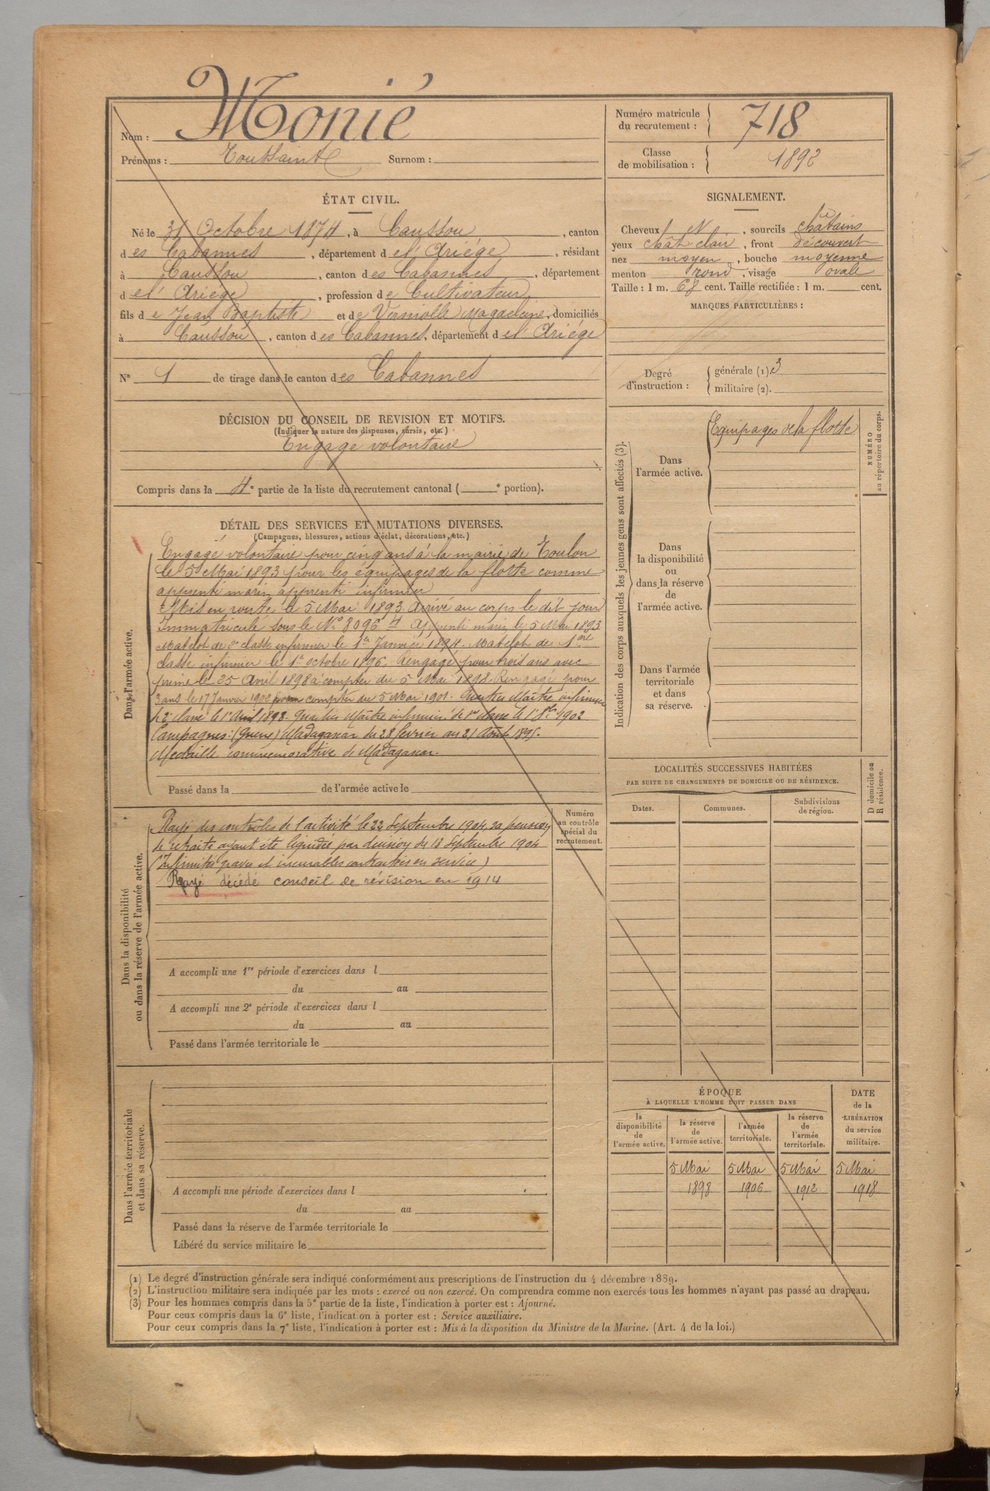 Nom : Monié
Prénoms : Toussaint Surnom :
Numéro matricule du recrutement : 718
Classe de mobilisation : 1892
ÉTAT CIVIL.
Né le 31 Octobre 1874, à Caussou, canton
des Cabannes, département de l'Ariège, résidant
à Caussou, canton des Cabannes, département
de l'Ariège, profession de Cultivateur
fils de Jean Baptiste et de Verniolle Magdeleine, domiciliés
à Caussou, canton des Cabannes, département de l'Ariège
N° 1 de tirage dans le canton des Cabannes
SIGNALEMENT.
Cheveux N, sourcils châtains
yeux chât clair, front découvert
nez moyen, bouche moyenne
menton rond, visage ovale
Taille : 1 m. 68 cent. Taille rectifiée : 1 m. cent.
MARQUES PARTICULIÈRES :
Degré d'instruction : générale (1) 3
militaire (2).
DÉCISION DU CONSEIL DE REVISION ET MOTIFS.
(Indiquer la nature des dispenses, sursis, etc.)
Engagé volontaire
Compris dans la 4e partie de la liste du recrutement cantonal ( e portion).
DÉTAIL DES SERVICES ET MUTATIONS DIVERSES.
(Campagnes, blessures, actions d'éclat, décorations, etc.)
Dans l'armée active.
Engagé volontaire pour cinq ans à la mairie de Toulon
le 5 Mai 1893 pour les équipages de la flotte comme
apprenti marin apprenti infirmier
Mis en route le 5 Mai 1893 Arrivé au corps le dit jour
Immatriculé sous le N° 8096 Apprenti marin le 5 Mai 1893
Matelot de classe infirmier le 1er Janvier 1894. Matelot de 1ère
classe infirmier le 1er octobre 1896. Rengagé pour trois ans avec
prime le 25 Avril 1898 à compter du 5 Mai 1898. Rengagé pour
3 ans le 17 Janvier compter du 5 Mai 1901. Quartier Maître infirmier
de 2e classe le 1er 1898. Quartier Maître infirmier de 1re classe le 1er 1902
Campagnes : (Guerre) Madagascar du 28 février au 21 Août 1895.
Médaille commémorative de Madagascar
Passé dans la de l'armée active le
Dans la disponibilité ou dans la réserve de l'armée active.
Numéro au contrôle spécial du recrutement.
Rayé des contrôles de l'activité le 22 Septembre 1904, sa pension
de retraite ayant été liquidée par décision du 18 Septembre 1904
(Infirmités graves et incurables contractées en service)
Rayé décédé conseil de révision en 1914
A accompli une 1re période d'exercices dans l
du au
A accompli une 2e période d'exercices dans l
du au
Passé dans l'armée territoriale le
Dans l'armée territoriale et dans sa réserve.
A accompli une période d'exercices dans l
du au
Passé dans la réserve de l'armée territoriale le
Libéré du service militaire le
Indication des corps auxquels les jeunes gens sont affectés (3).
Dans l'armée active.
Equipages de la flotte
NUMÉRO au répertoire du corps.
Dans la disponibilité ou dans la réserve de l'armée active.
Dans l'armée territoriale et dans sa réserve.
LOCALITÉS SUCCESSIVES HABITÉES
PAR SUITE DE CHANGEMENTS DE DOMICILE OU DE RÉSIDENCE.
Dates. Communes. Subdivisions de région.
D domicile ou R résidence.
ÉPOQUE
À LAQUELLE L'HOMME DOIT PASSER DANS
la disponibilité de l'armée active.
la réserve de l'armée active.
l'armée territoriale.
la réserve de l'armée territoriale.
DATE de la LIBÉRATION du service militaire.
5 Mai 5 Mai 5 Mai 5 Mai
1898 1906 1912 1918
(1) Le degré d'instruction générale sera indiqué conformément aux prescriptions de l'instruction du 4 décembre 1889.
(2) L'instruction militaire sera indiquée par les mots : exercé ou non exercé. On comprendra comme non exercés tous les hommes n'ayant pas passé au drapeau.
(3) Pour les hommes compris dans la 5e partie de la liste, l'indication à porter est : Ajourné.
Pour ceux compris dans la 6e liste, l'indication à porter est : Service auxiliaire.
Pour ceux compris dans la 7e liste, l'indication à porter est : Mis à la disposition du Ministre de la Marine. (Art. 4 de la loi.)